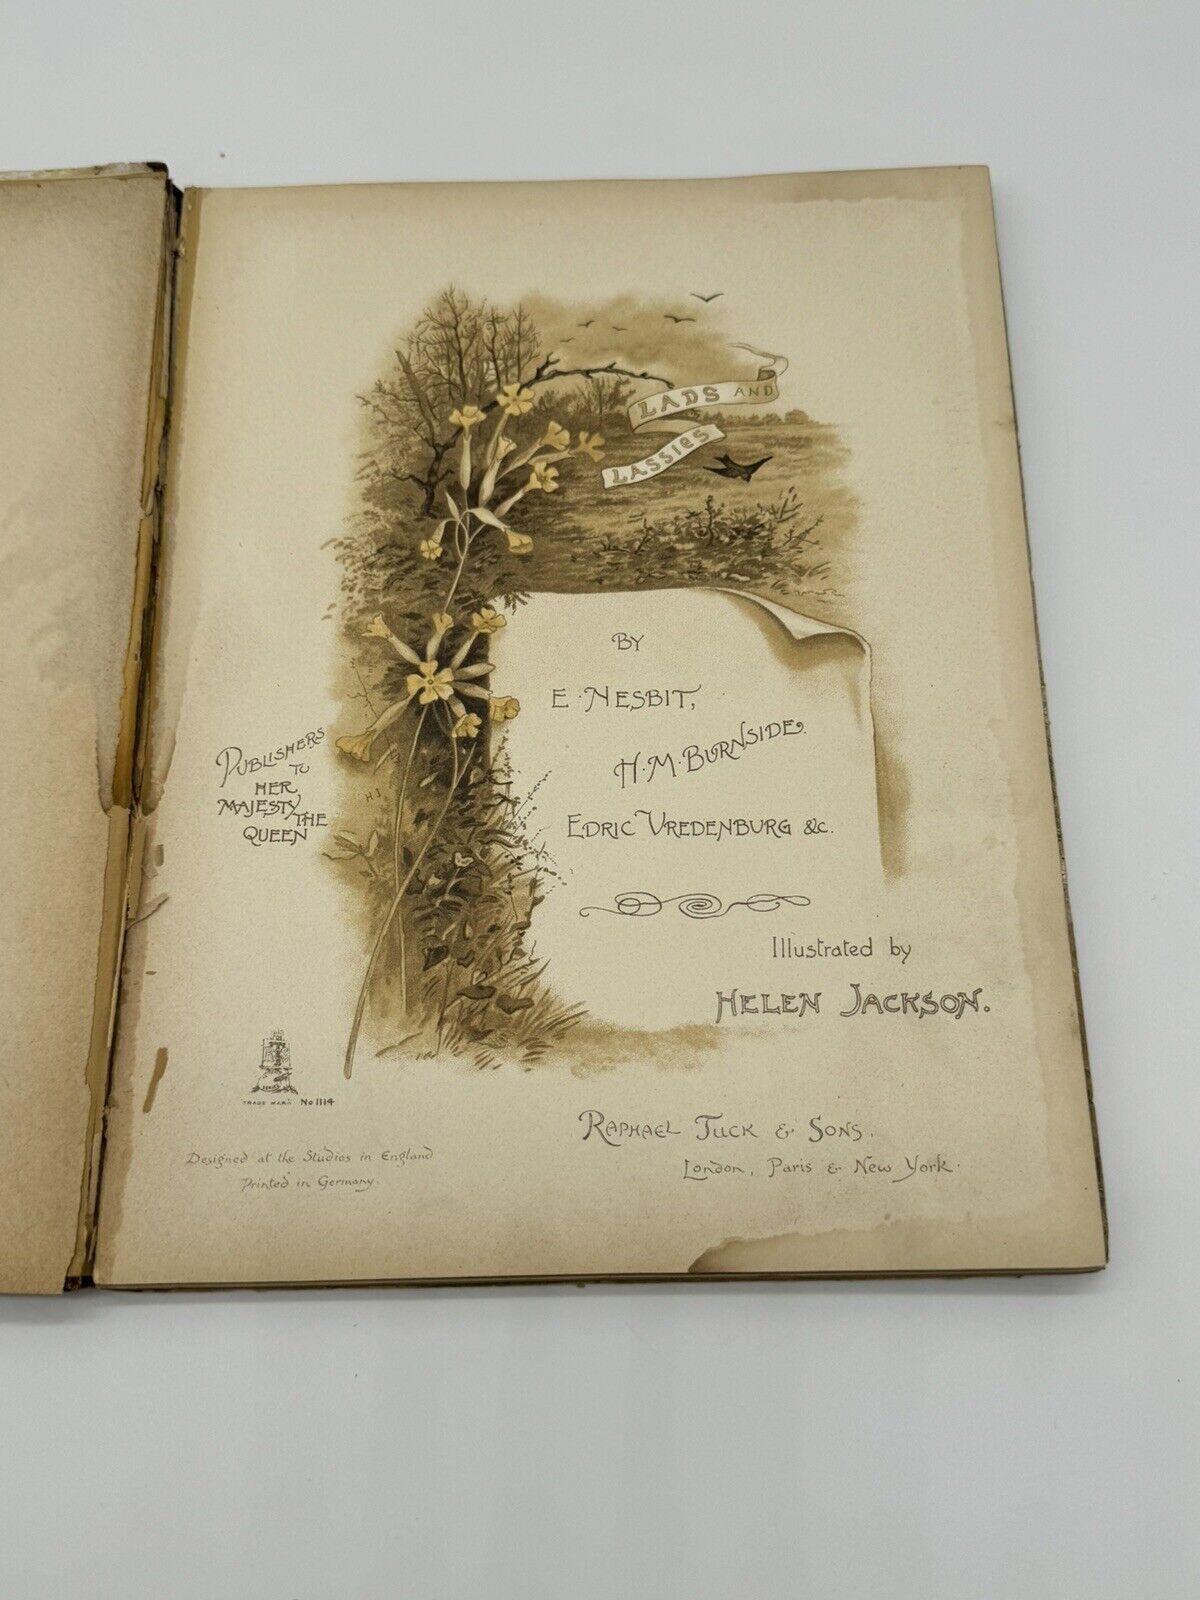 LADS AND
LASSIES
BY
E. NESBIT,
H. M. BURNSIDE.
EDRIC VREDENBURG &c.
PUBLISHERS
TO
HER
MAJESTY
THE
QUEEN
H J
Illustrated by
HELEN JACKSON.
TRADE MARK No 1114
Designed at the Studios in England
Printed in Germany.
RAPHAEL TUCK & SONS.
London, Paris & New York.